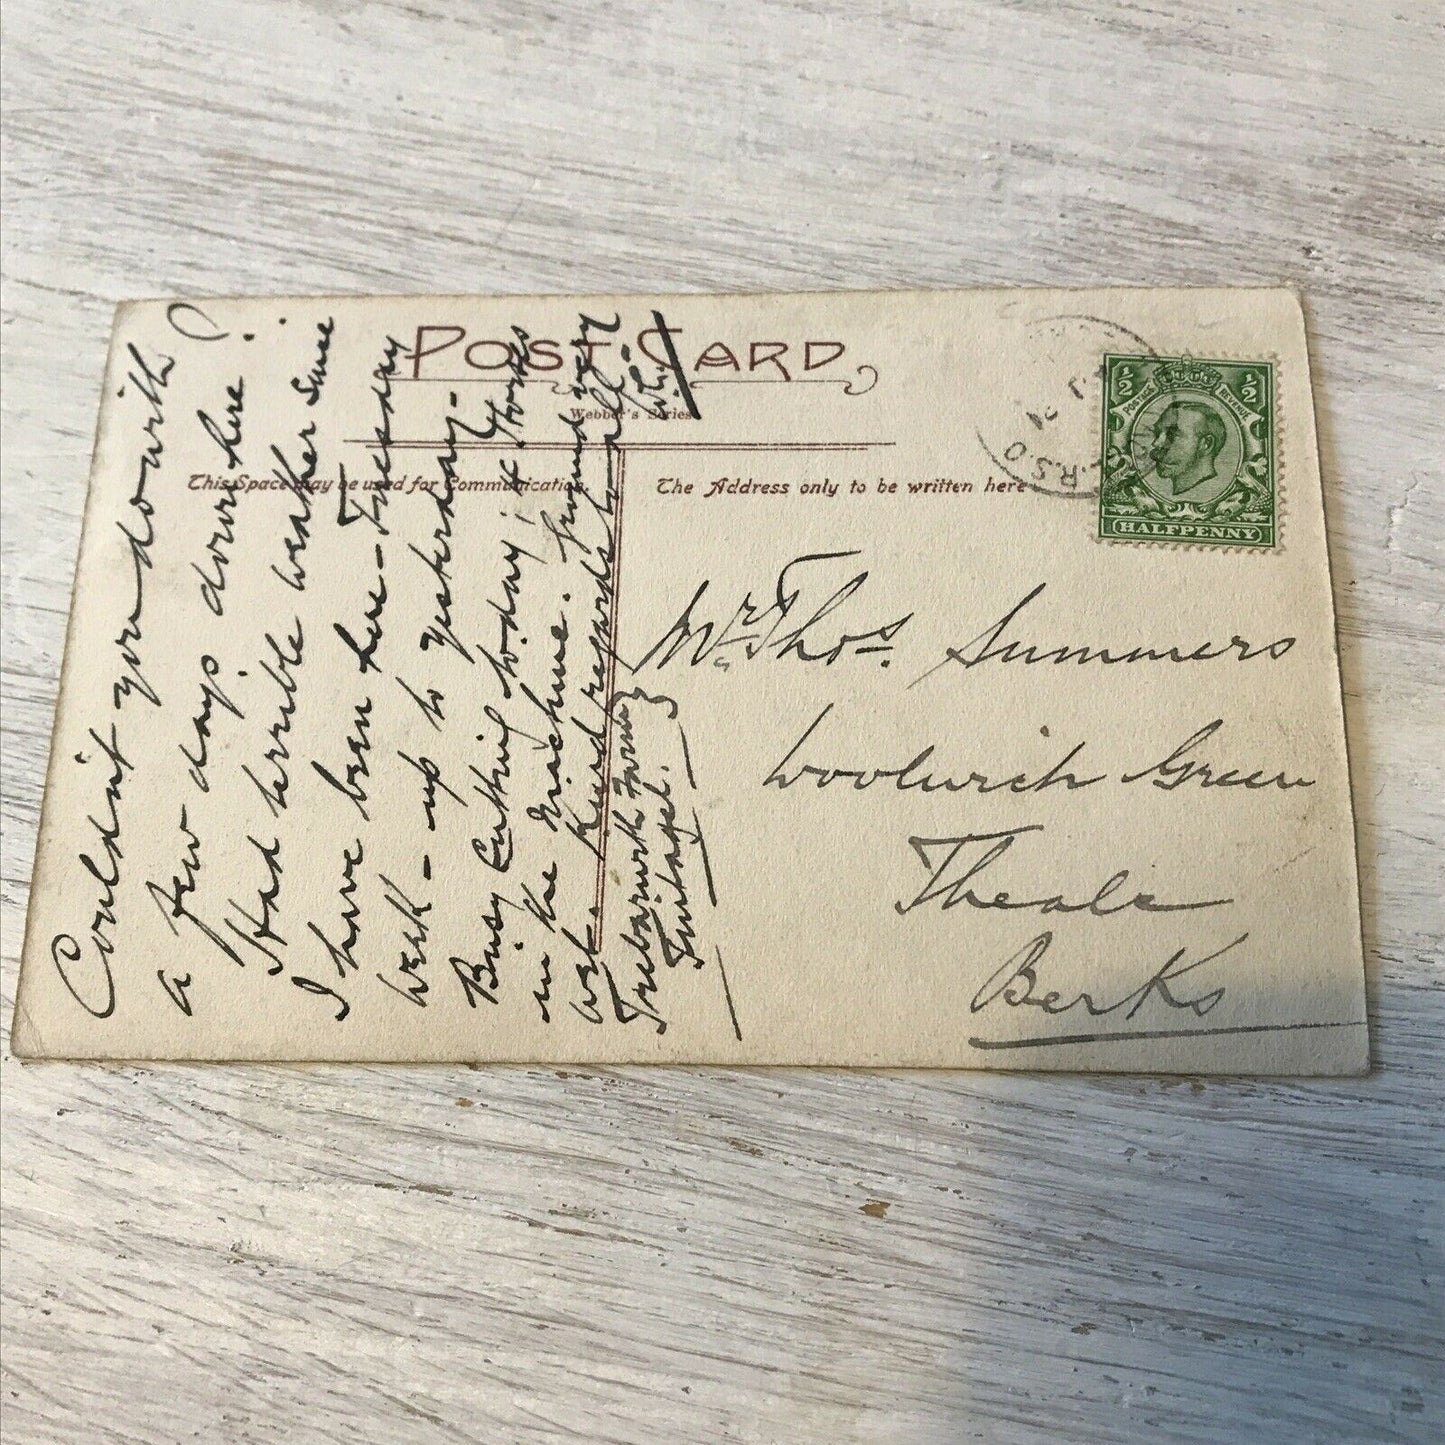 POST CARD
Webber's Series
This Space may be used for Communication.
The Address only to be written here
½ ½
POSTAGE REVENUE
HALFPENNY
R.S.O
Couldn't you do with
a few days down here ?
Had terrible weather since
I have been here – Tuesday
week – up to yesterday.
Busy Cutting to.day ; it works
in the machine. Ground very
wet. Kind regards to all.
Trebarwith Farm
Tintagel.
Mr. Thos. Summers
Woolwich Green
Theale
Berks